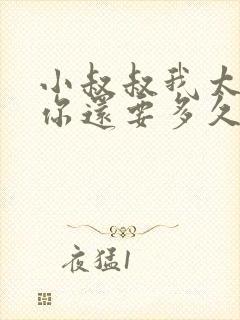 小叔叔我太
你還要多久
夜猛1